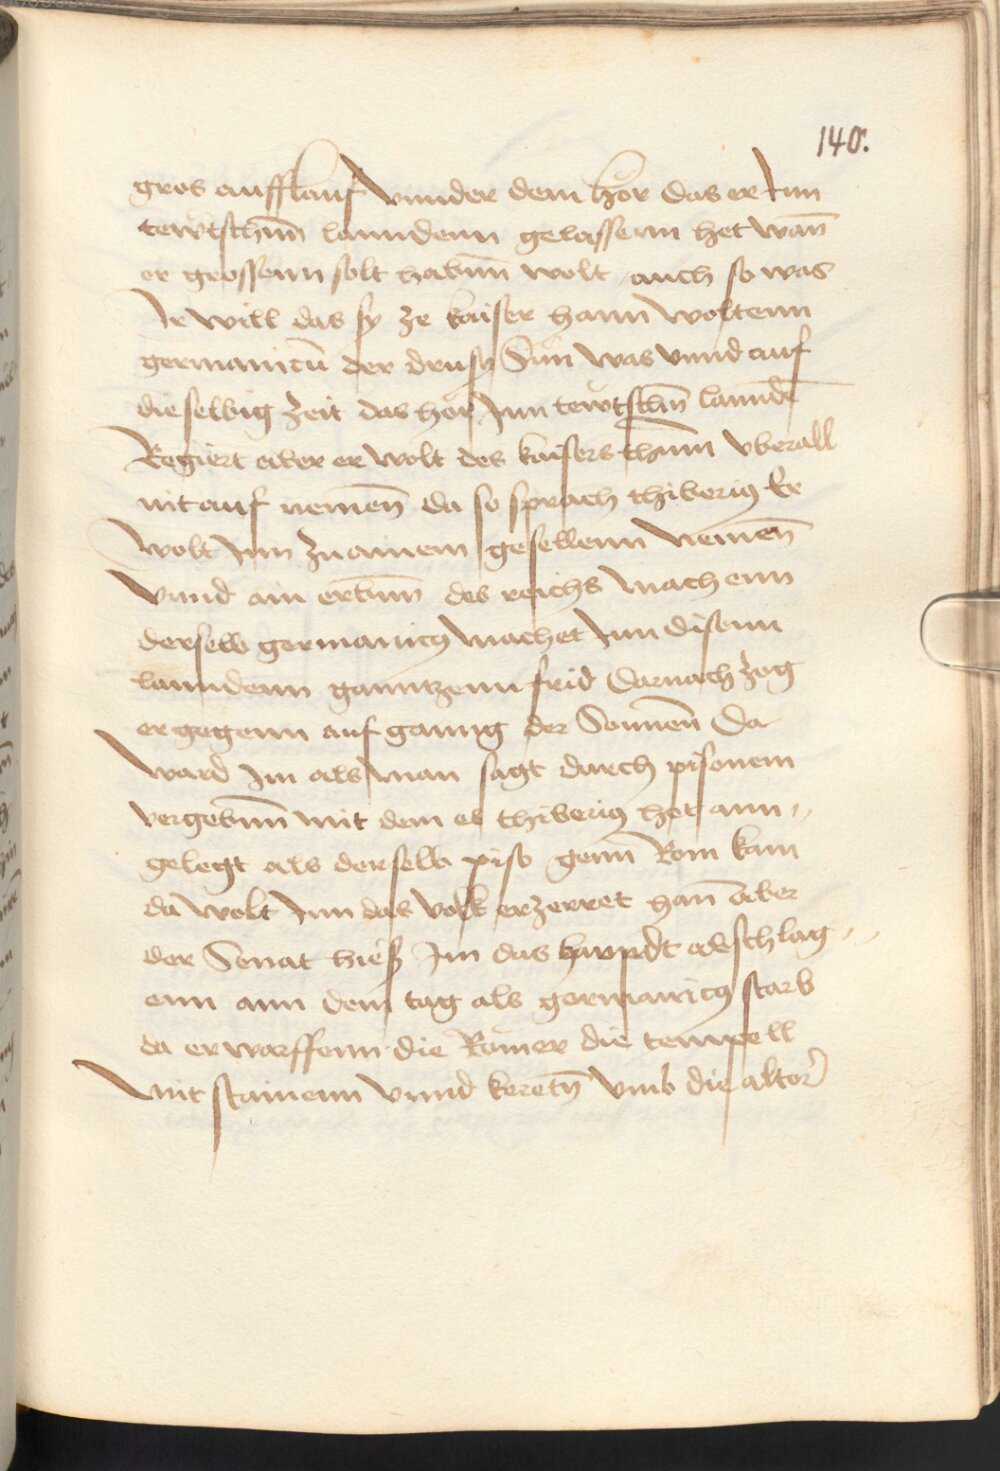 140.
gros aufflauf vnnder dem hör das er Inn
tewtschn̄n lanndenn gelassenn het wan̄
er grossenn solt habn̄n wolt auch so was
Ir will das sy ze kaiser hann woltenn
germanicū der drusy Sūn was vnnd auf
die selbig zeit das hör Inn tewtschn̄ lannde͞
Regiert aber er wolt des kaisersthum̄ vberall
nit auf nemen̄ da so sprach thiberiꝰ Er
wolt Inn zu ainem gesellenn nemen̄
vnnd ain erbn̄n des reichs machenn
derselb germanicꝰ machet Inn disenn
lanndenn ganntzenn frid Darnach zog
er gegenn auf ganng der Sonnen̄ Da
ward Im als man sagt durch pisonem
vergebn̄n mit dem es thiberiꝰ het ann〃
gelegt als derselb piso genn̄ Rom kam
da wolt Inn das volk erzerret han̄ aber
der Senat hieß Im das hawpdt abschlag〃
enn ann dem tag als germanicꝰ starb
da erwarffenn die Römer die tempell
mit stainenn vnnd keretn̄ vmb die alter̄